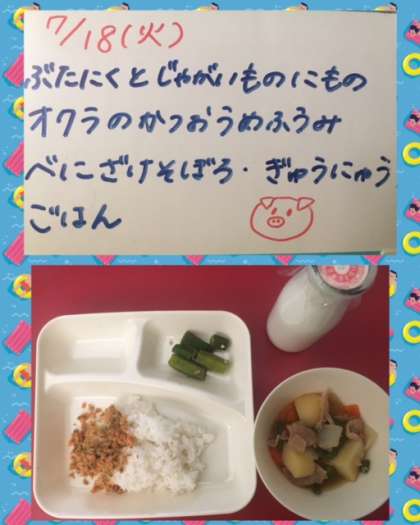 7/18(火)
ぶたにくとじゃがいものにもの
オクラのかつおうめふうみ
べにざけそぼろ・ぎゅうにゅう
ごはん